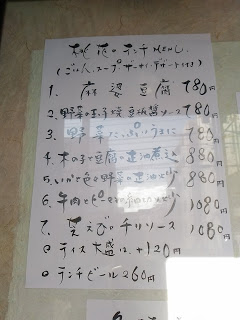 桃花のランチMENU.
(ごはん、スープ、ザーサイ、デザート付)
1. 麻婆豆腐 780円
2. 野菜の玉子焼豆板醤ソース 780円
3. 野菜たっぷり 780円
4. 木の子と豆腐の正油煮込 880円
5. いかと色々野菜の正油炒め 880円
6. 牛肉とピーマンの炒め 980円
7. 芝えびのチリソース 1080円
◎ライス大盛は、+120円
◎ランチビール 260円